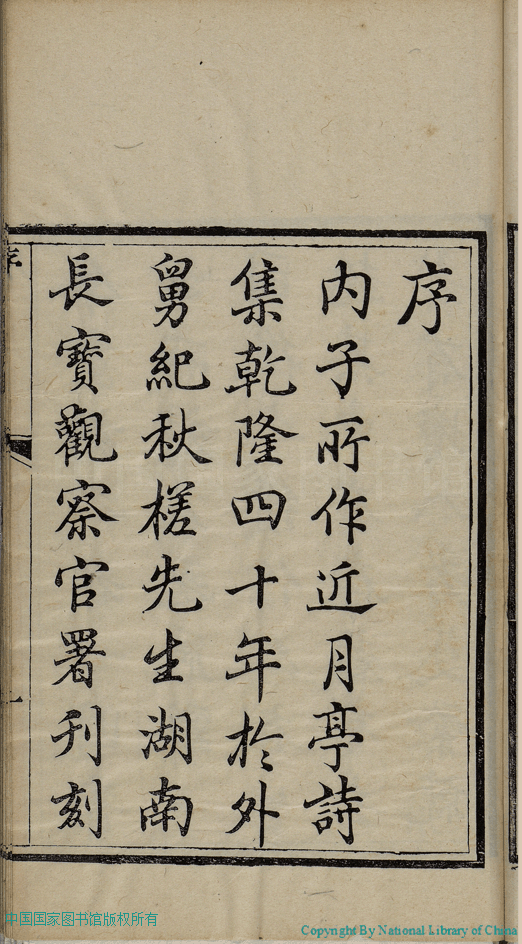 序
内子所作近月亭詩
集乾隆四十年於外
舅紀秋槎先生湖南
長寶觀察官署刊刻
序
一
中国国家图书馆版权所有
Copyright By National Library of China